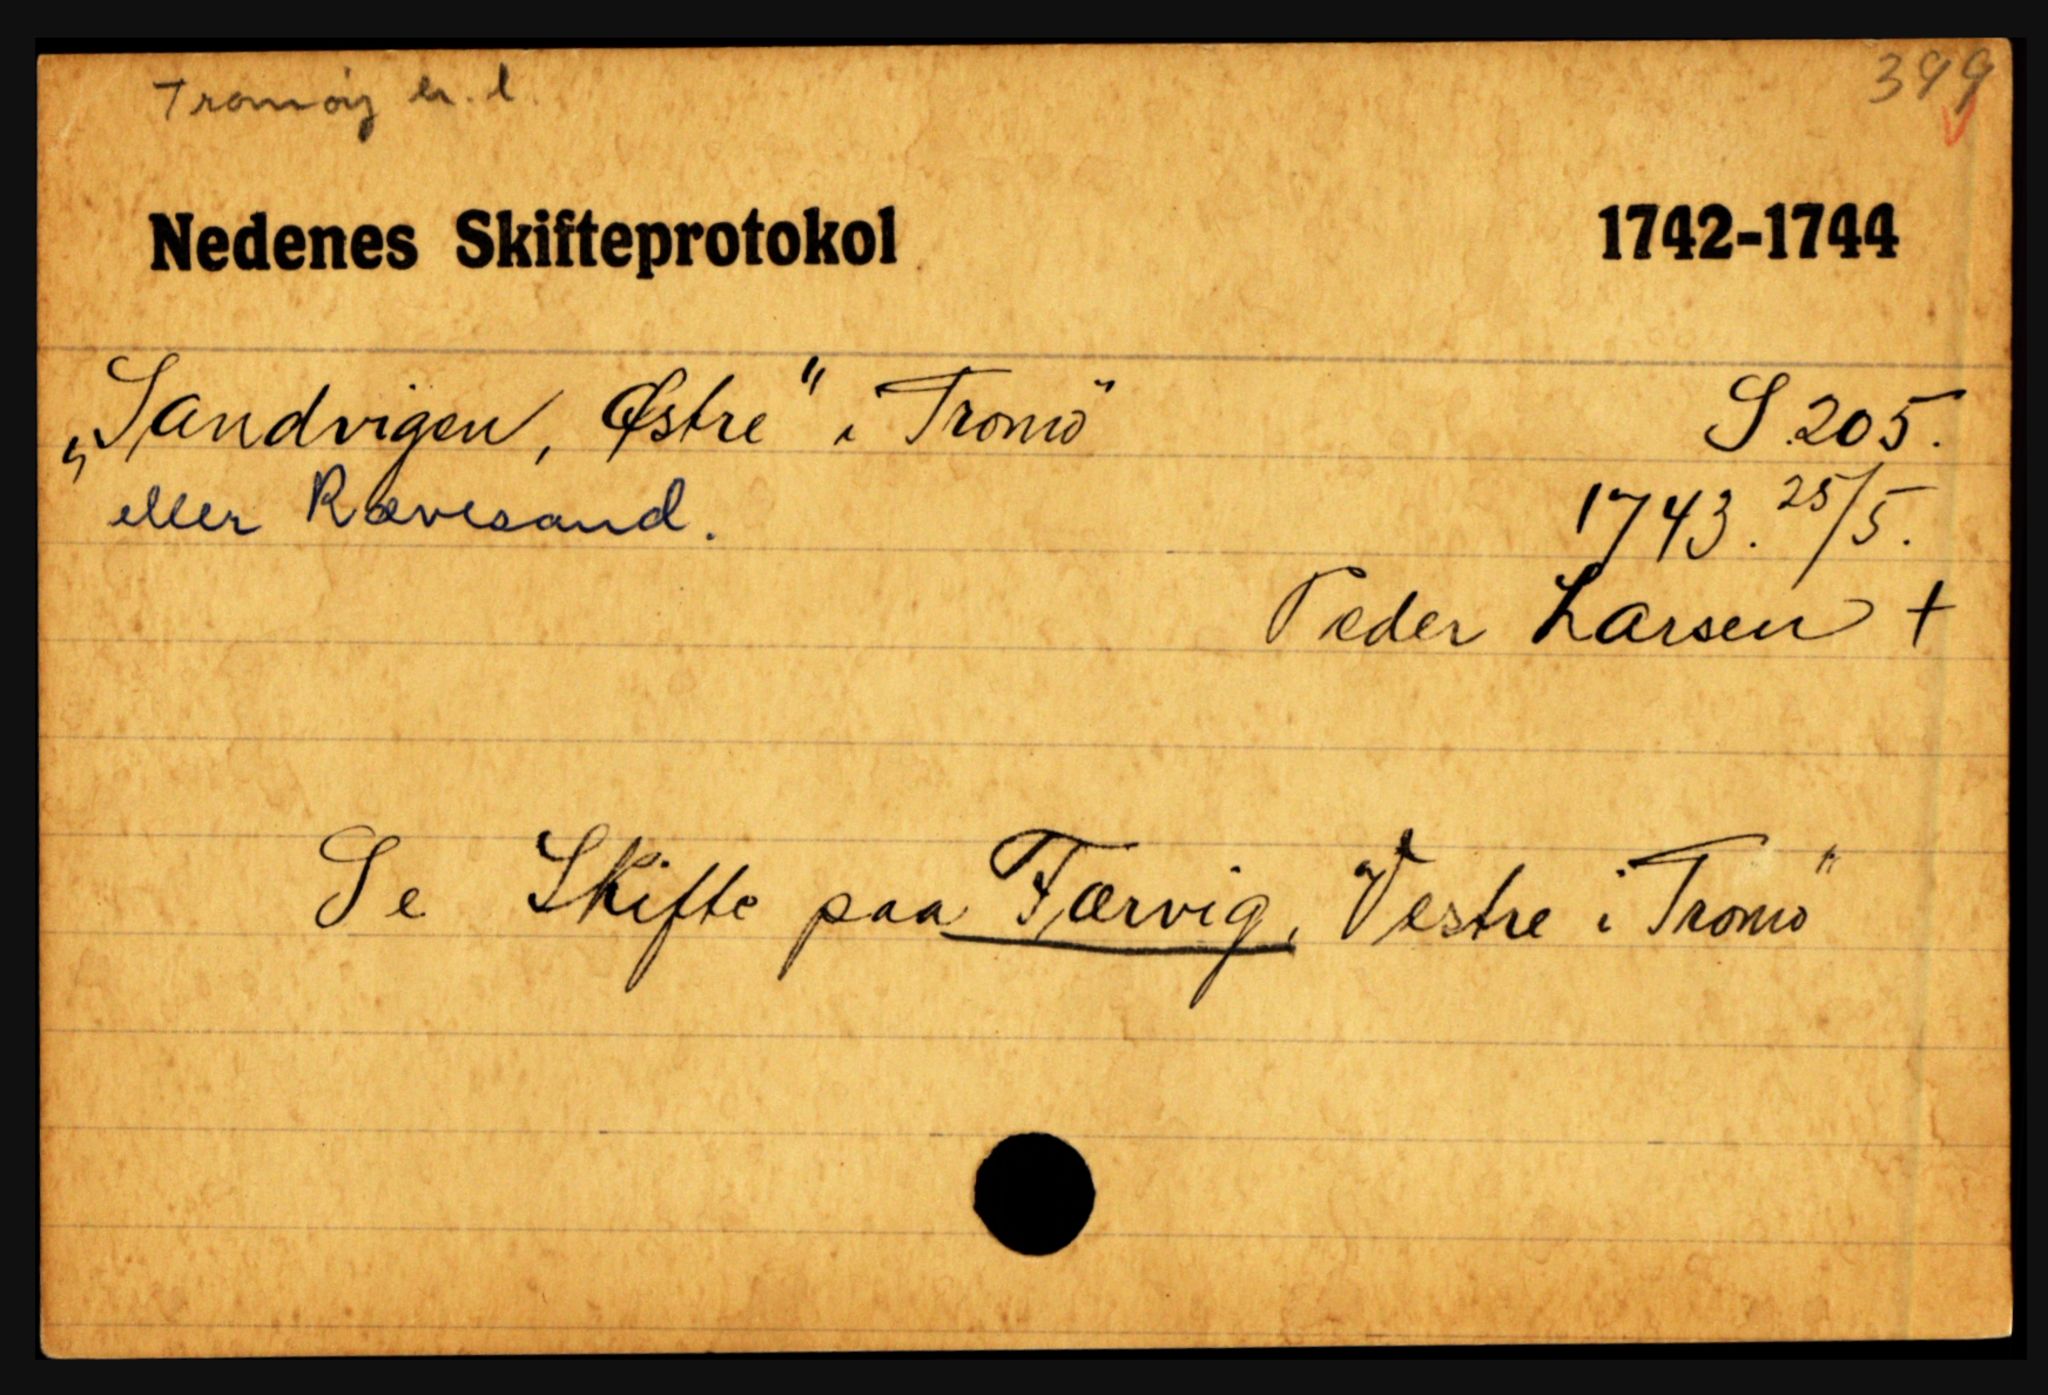 Tromøy l. 399
Nedenes Skifteprotokol 1742-1744
„Sandvigen, Østre" i Tromö S. 205.
eller Rævesand. 1743. 25/5.
Peder Larsen +
Se Skifte paa Færvig, Vestre i Tromö